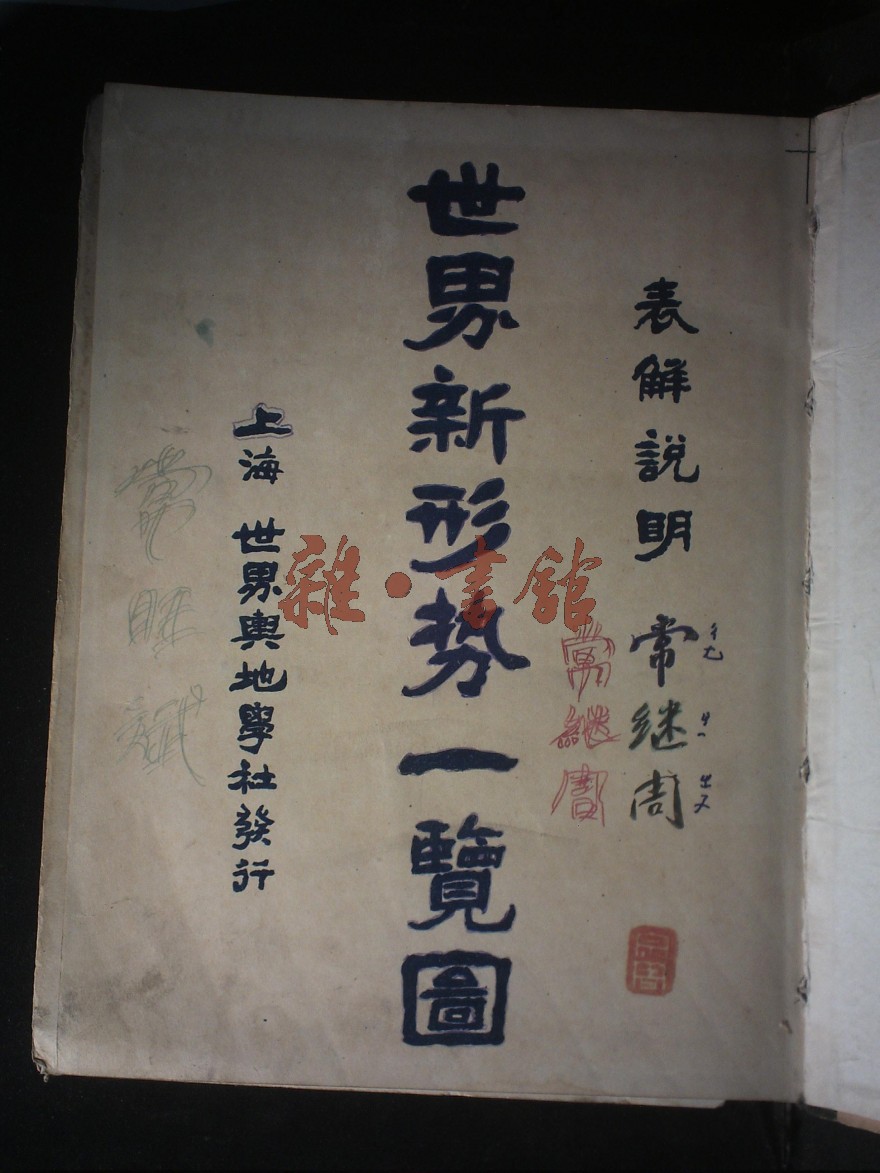 表解說明 常继周
ㄔㄤ ㄐㄧ ㄓㄡ
常繼周
世界新形势一覽圖
雜·書館
上海 世界輿地學社發行